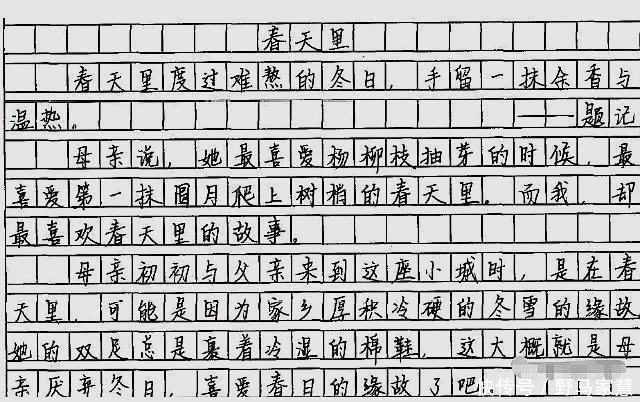 春天里
春天里度过难熬的冬日，手留一抹余香与
温热。——题记
母亲说，她最喜爱杨柳枝抽芽的时候，最
喜爱第一抹圆月爬上树梢的春天里。而我，却
最喜欢春天里的故事。
母亲初初与父亲来到这座小城时，是在春
天里，可能是因为家乡厚积冷硬的冬雪的缘故，
她的双足总是裹着冷湿的棉鞋，这大概就是母
亲厌弃冬日，喜爱春日的缘故了吧。